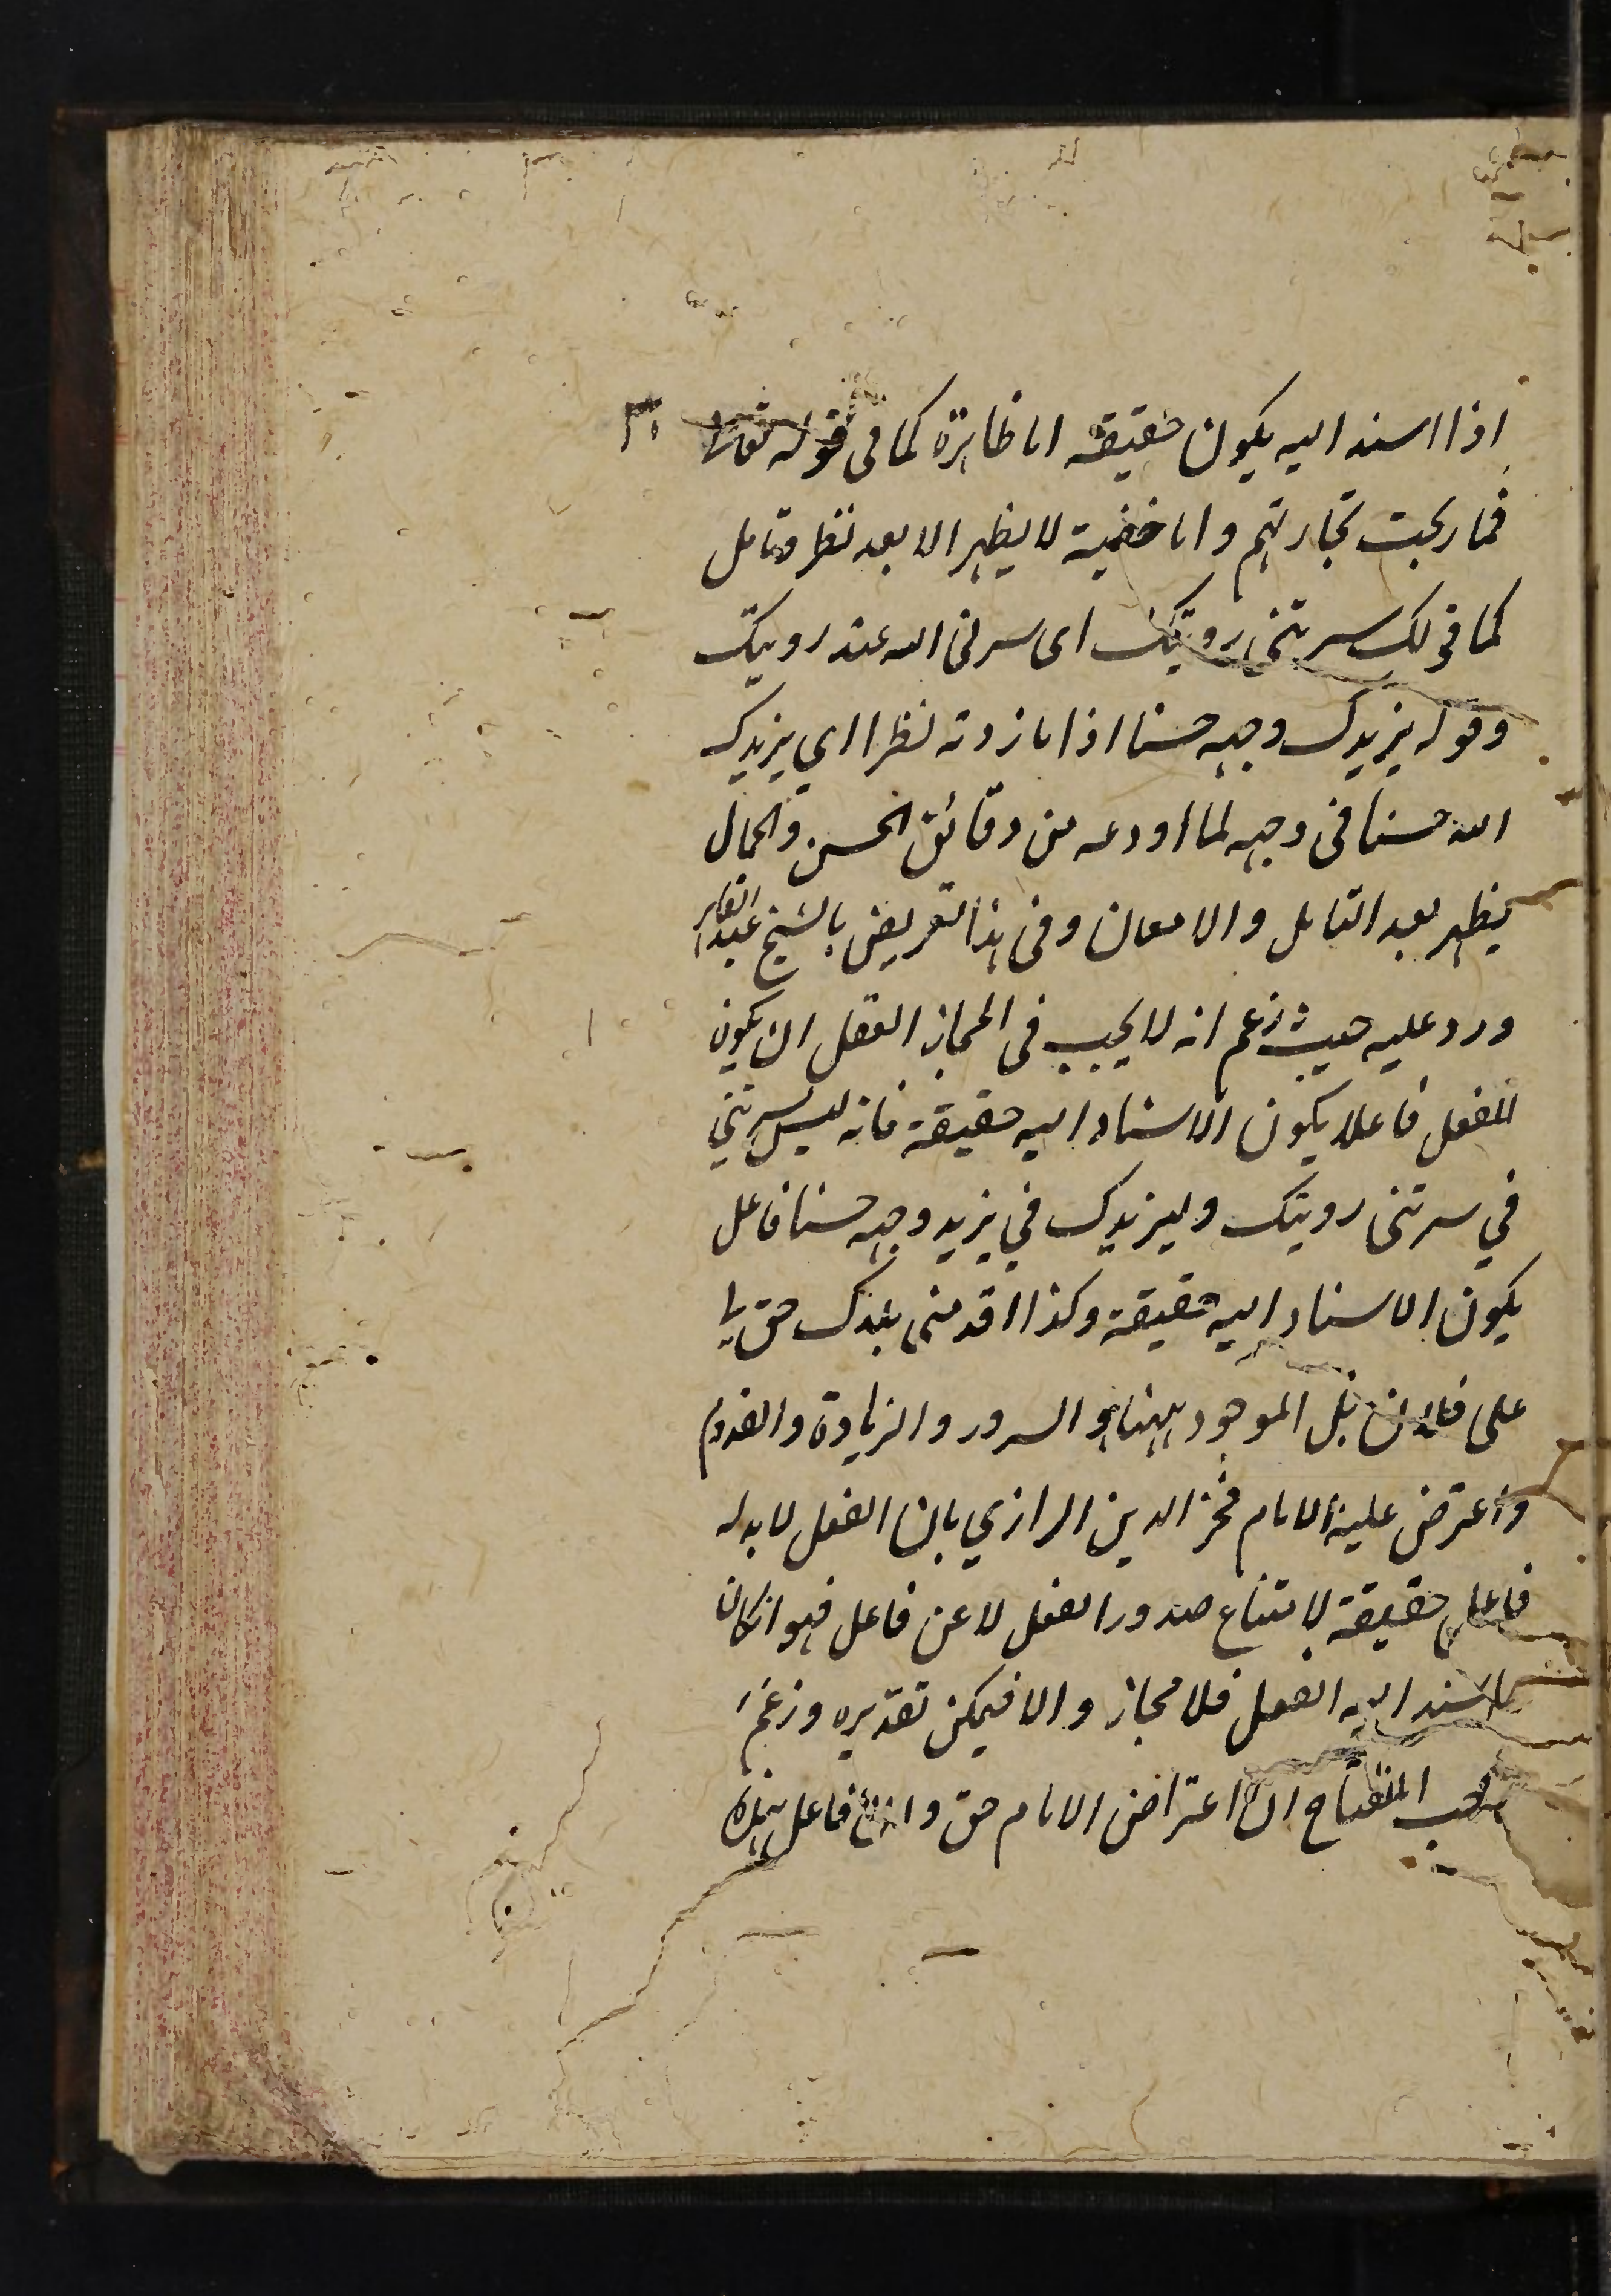 اذا اسند اليه يكون حقيقة اما ظاهرة كما فى قوله تعالى
فما ربحت تجارتهم واما خفية لا يظهر الا بعد نظر وتامل
كما فى لك سرتنى رويتك اى سرنى الله عند رويتك
وقوله يزيدك وجهه حسنا اذا ما زدته نظرا اي يزيدك
الله حسنا فى وجهه لما اودعه من دقائق الحسن والجمال
يظهر بعد التامل والامعان وفى هذا تعريض بالشيخ عبد القاهر
ورد عليه حيث زعم انه لا يجب فى المجاز العقلى ان يكون
للفعل فاعلا يكون الاسناد اليه حقيقة فانه ليس لسرتني
في سرتنى رويتك وليزيدك في يزيد وجهه حسنا فاعل
يكون الاسناد اليه حقيقة وكذا اقدمنى بلدك حق لى
على فلان بل الموجود ههنا هو السرور والزيادة والقدوم
واعترض عليه الامام فخر الدين الرازي بان الفعل لا بد له
فاعل حقيقة لامتناع صدور الفعل لا عن فاعل فهو ان كان
ما اسند اليه الفعل فلا مجاز والا فيمكن تقديره وزعم
صاحب المفتاح ان اعتراض الامام حق وان فاعل هذه